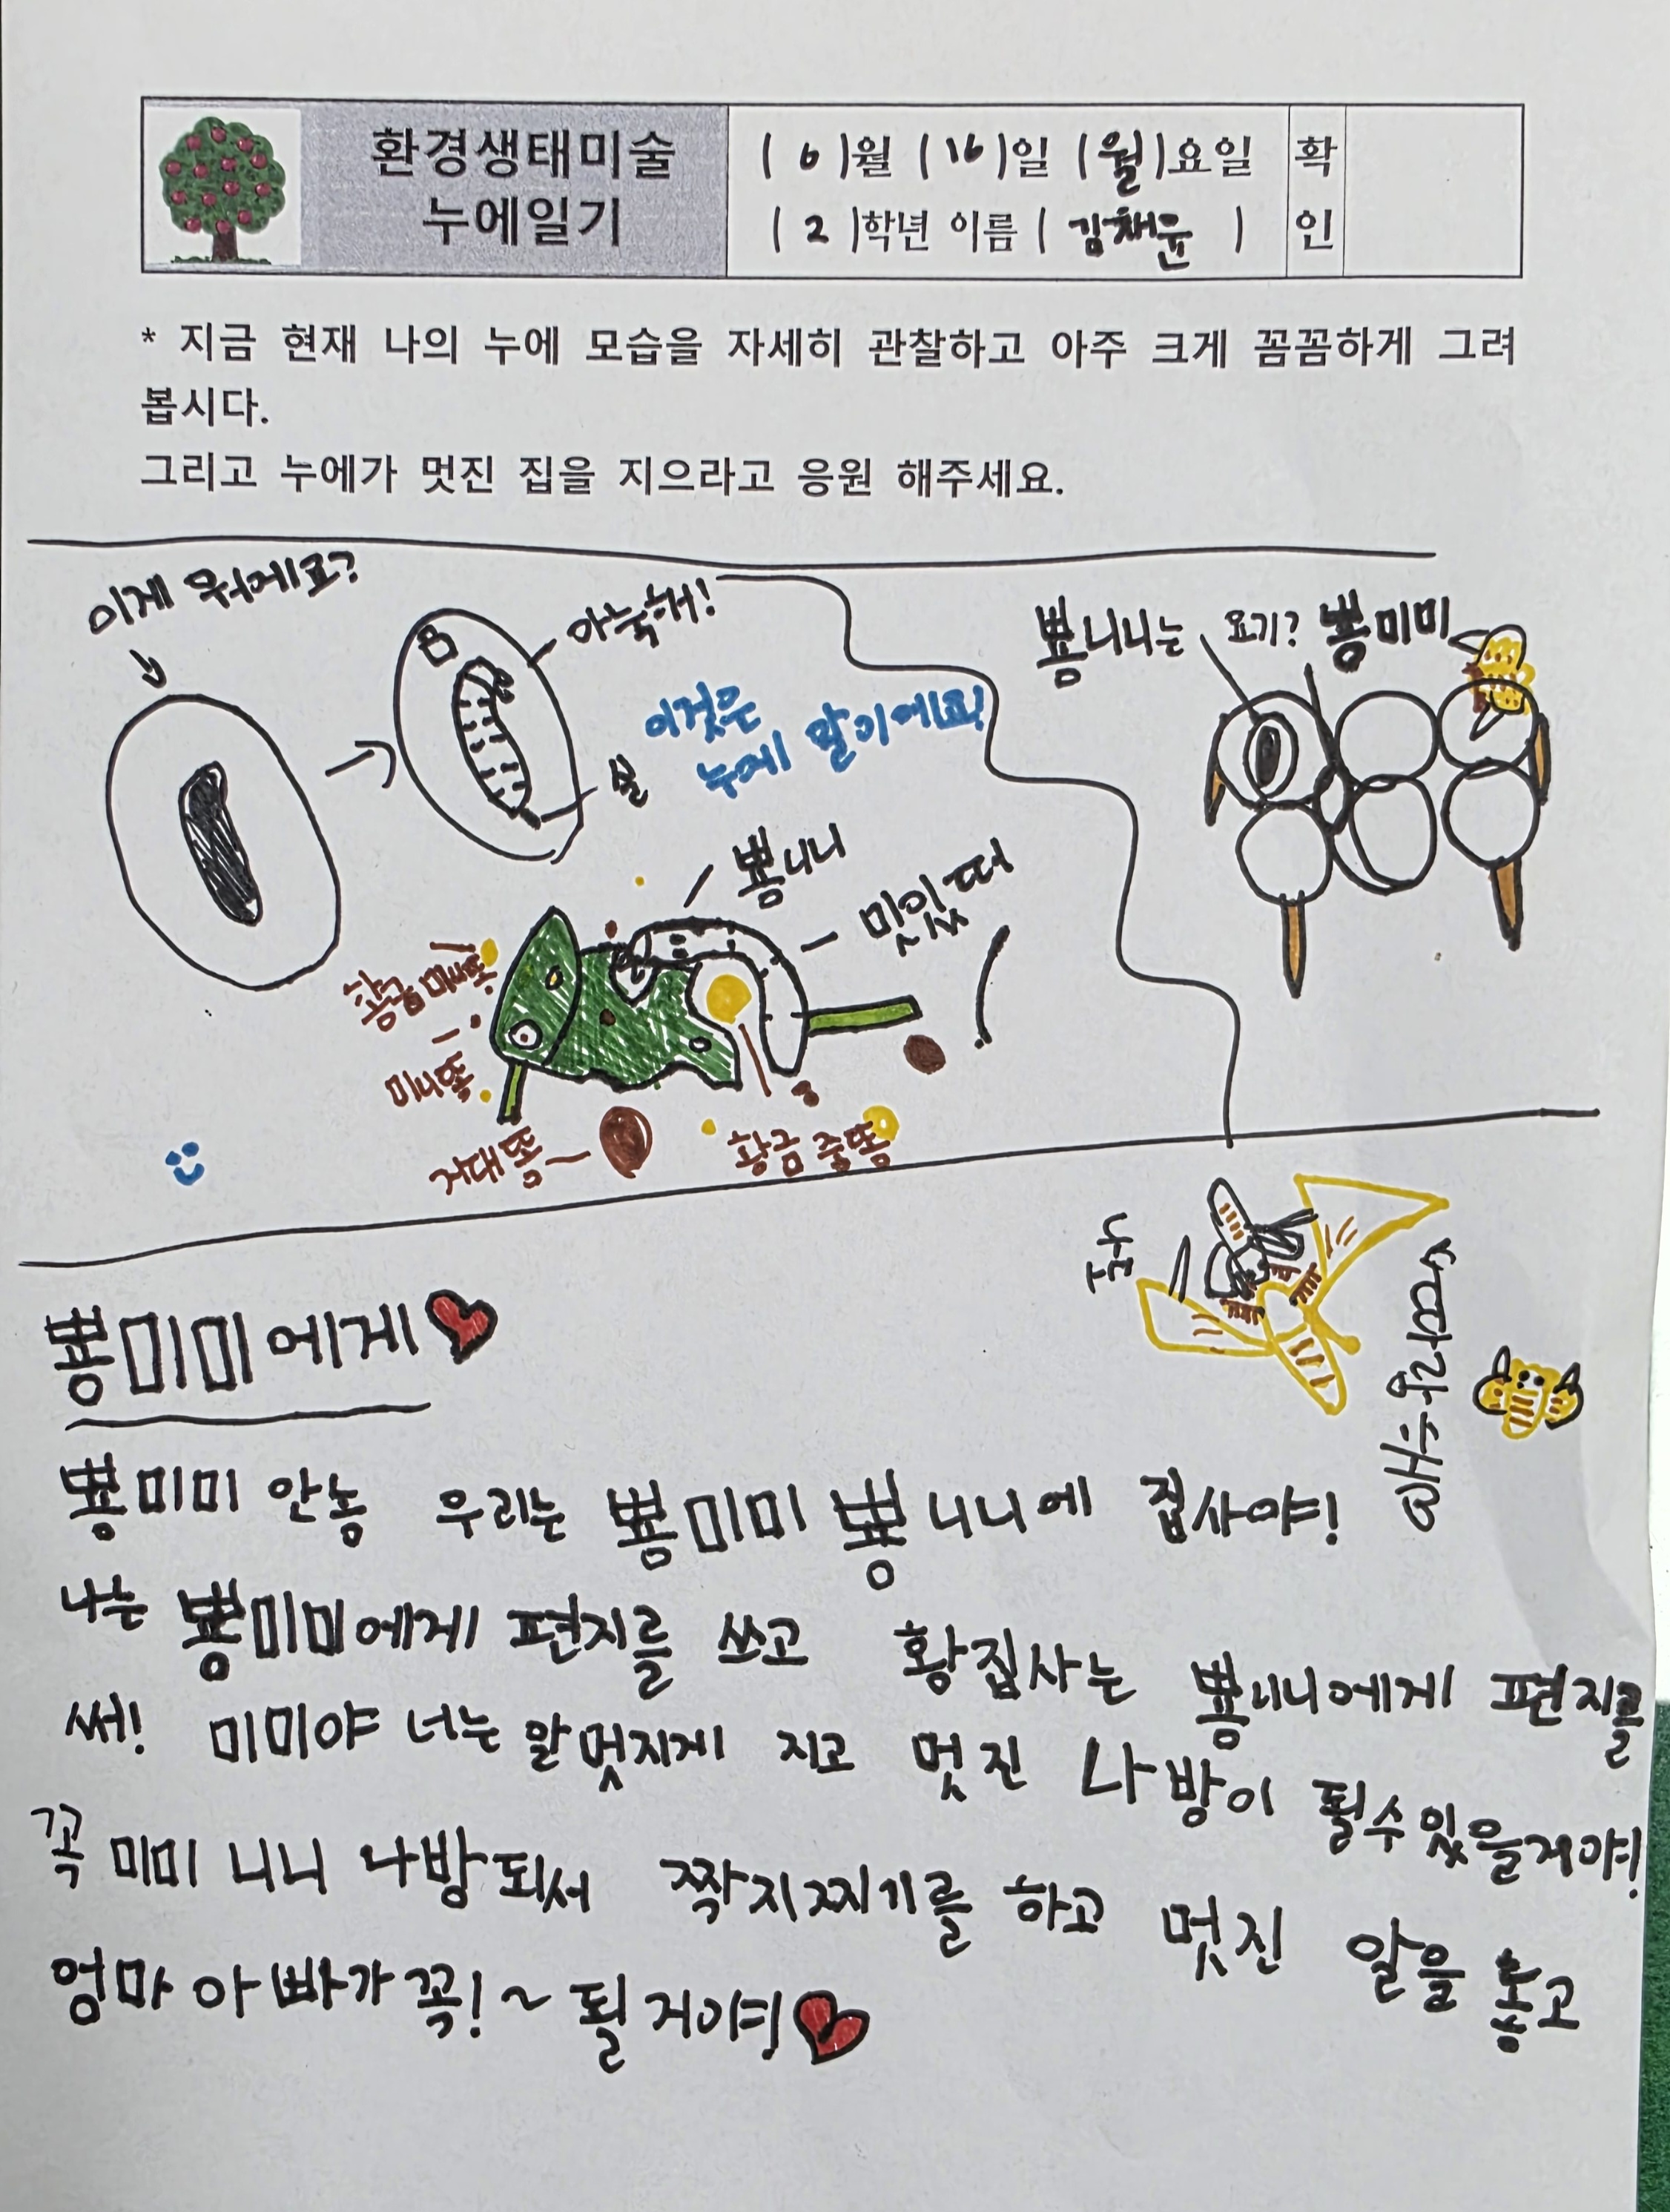 환경생태미술
누에일기
( 6 )월 ( 16 )일 (월)요일
( 2 )학년 이름 ( 김채윤 )
확
인
* 지금 현재 나의 누에 모습을 자세히 관찰하고 아주 크게 꼼꼼하게 그려
봅시다.
그리고 누에가 멋진 집을 지으라고 응원 해주세요.
이게 뭐게요?
아늑해!
실
이것은
누에 말기에요!
뿅니니
밋있떠
황금 미니똥
미니똥
거대똥
황금 중똥
뿅니니는 요기? 뿅미미
뿅미미에게
뿅미미 안농 우리는 뿅미미 뿅니니에 집사야!
나는 뿅미미에게 편지를 쓰고 황집사는 뿅니니에게 편지를
써! 미미야 너는 알 멋지게 지고 멋진 나방이 될수있을거야!
꼭 미미 니니 나방되서 짝지찌기를 하고 멋진 알을 놓고
엄마 아빠가 꼭!~ 될거야!